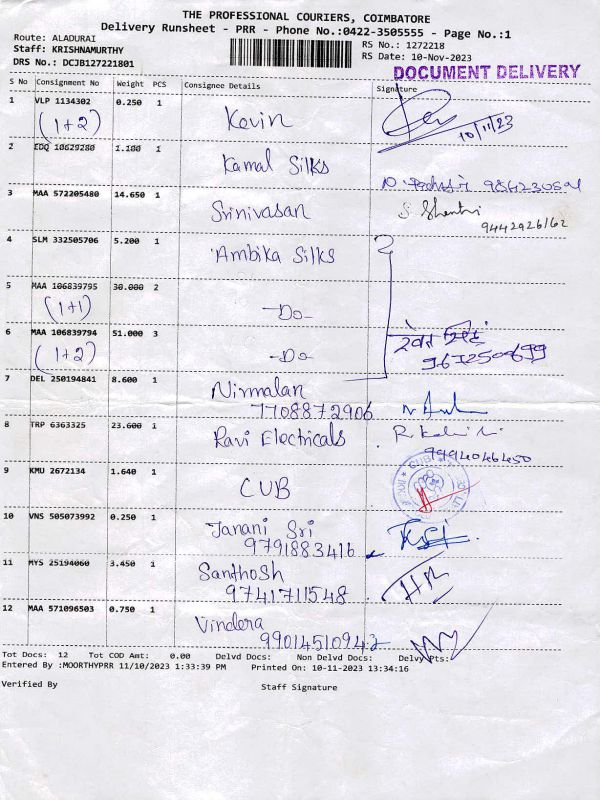 THE PROFESSIONAL COURIERS, COIMBATORE
Delivery Runsheet - PRR - Phone No.:0422-3505555 - Page No.:1
Route: ALADURAI
Staff: KRISHNAMURTHY
DRS No.: DCJB127221801
RS No.: 1272218
RS Date: 10-Nov-2023
DOCUMENT DELIVERY
S No Consignment No Weight PCS Consignee Details Signature
1 VLP 1134302 0.250 1 Kevin
(1+2) 10/11/23
2 EDQ 10629280 1.100 1 Kamal Silks
3 MAA 572205480 14.650 1 Srinivasan
9442926162
4 SLM 332505706 5.200 1 Ambika Silks
5 MAA 106839795 30.000 2 -Do-
(1+1)
6 MAA 106839794 51.000 3 -Do-
(1+2)
7 DEL 250194841 8.600 1 Nirmalan
7708872906
8 TRP 6363325 23.600 1 Ravi Electricals
9994046450
9 KMU 2672134 1.640 1 CUB
10 VNS 505073992 0.250 1 Janani Sri
9791883416
11 MYS 25194060 3.450 1 Santhosh
9741711548
12 MAA 571096503 0.750 1 Vindera
Tot Docs: 12 Tot COD Amt: 0.00 Delvd Docs: Non Delvd Docs: Delvy Pts:
Entered By :MOORTHYPRR 11/10/2023 1:33:39 PM Printed On: 10-11-2023 13:34:16
Verified By Staff Signature